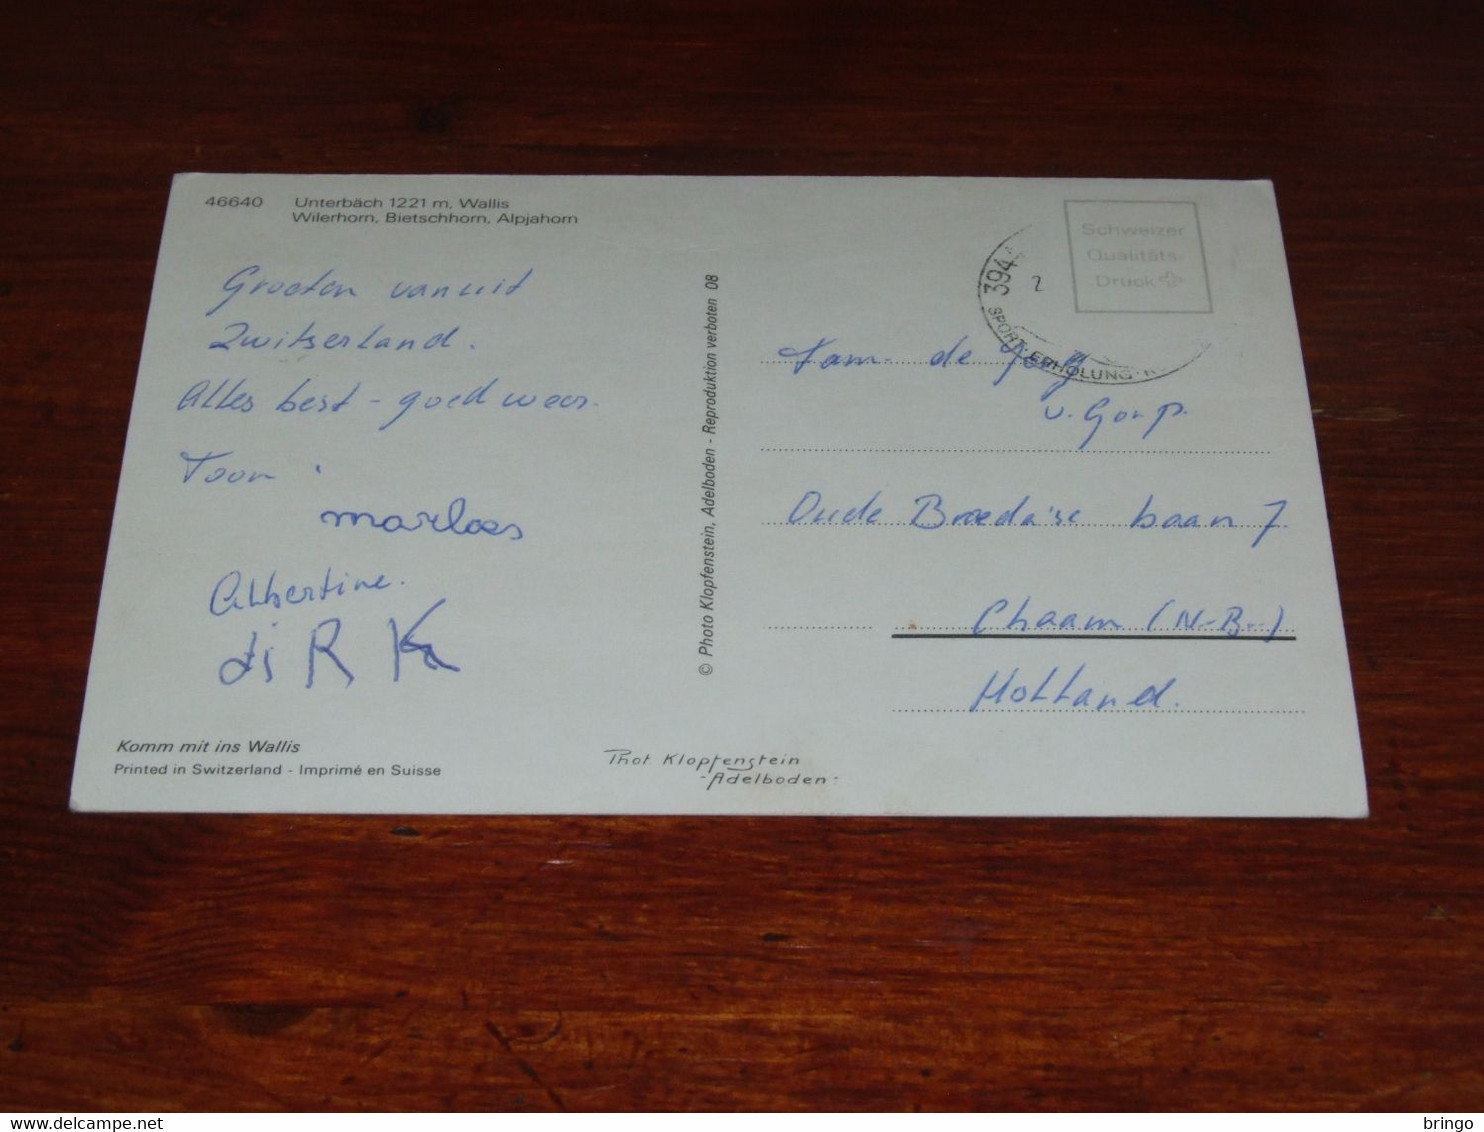 46640 Unterbäch 1221 m, Wallis
Wilerhorn, Bietschhorn, Alpjahorn
Groeten vanuit
Zwitserland.
Alles best - goed weer.
Toon
marloes
Albertine.
diRK
Komm mit ins Wallis
Printed in Switzerland - Imprimé en Suisse
© Photo Klopfenstein, Adelboden - Reproduktion verboten 08
Phot Klopfenstein
-Adelboden-
Schweizer
Qualitäts-
Druck
394
2
SPORT-ERHOLUNG
Fam. de
v. Gorp.
Oude Bredase baan 7
Chaam (N-Br.)
Holland.
www.delcampe.net
bringo